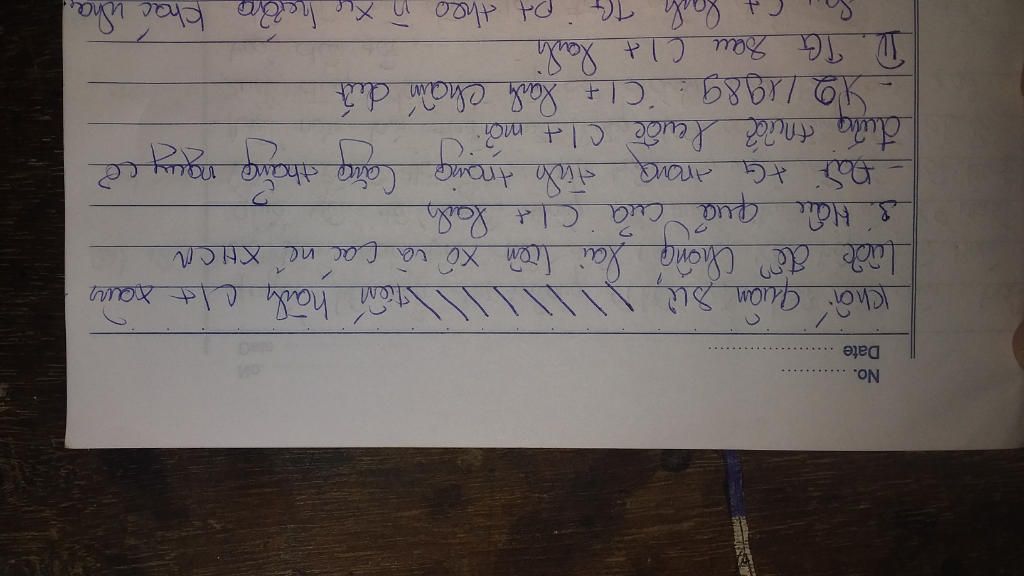 No. ............
Date ....................
khối quân sự, tiến hành C/t xâm
lược để chống lại Liên Xô và các nc XHCN
3. Hậu quả của C/t lạnh
- Đặt TG trong tình trạng căng thẳng nguy cơ
đứng trước 1 cuộc C/t mới.
- 12/1989: C/t lạnh chấm dứt
II. TG sau C/t lạnh
Sau C/t lạnh TG pt theo n xu hướng khác nhau.